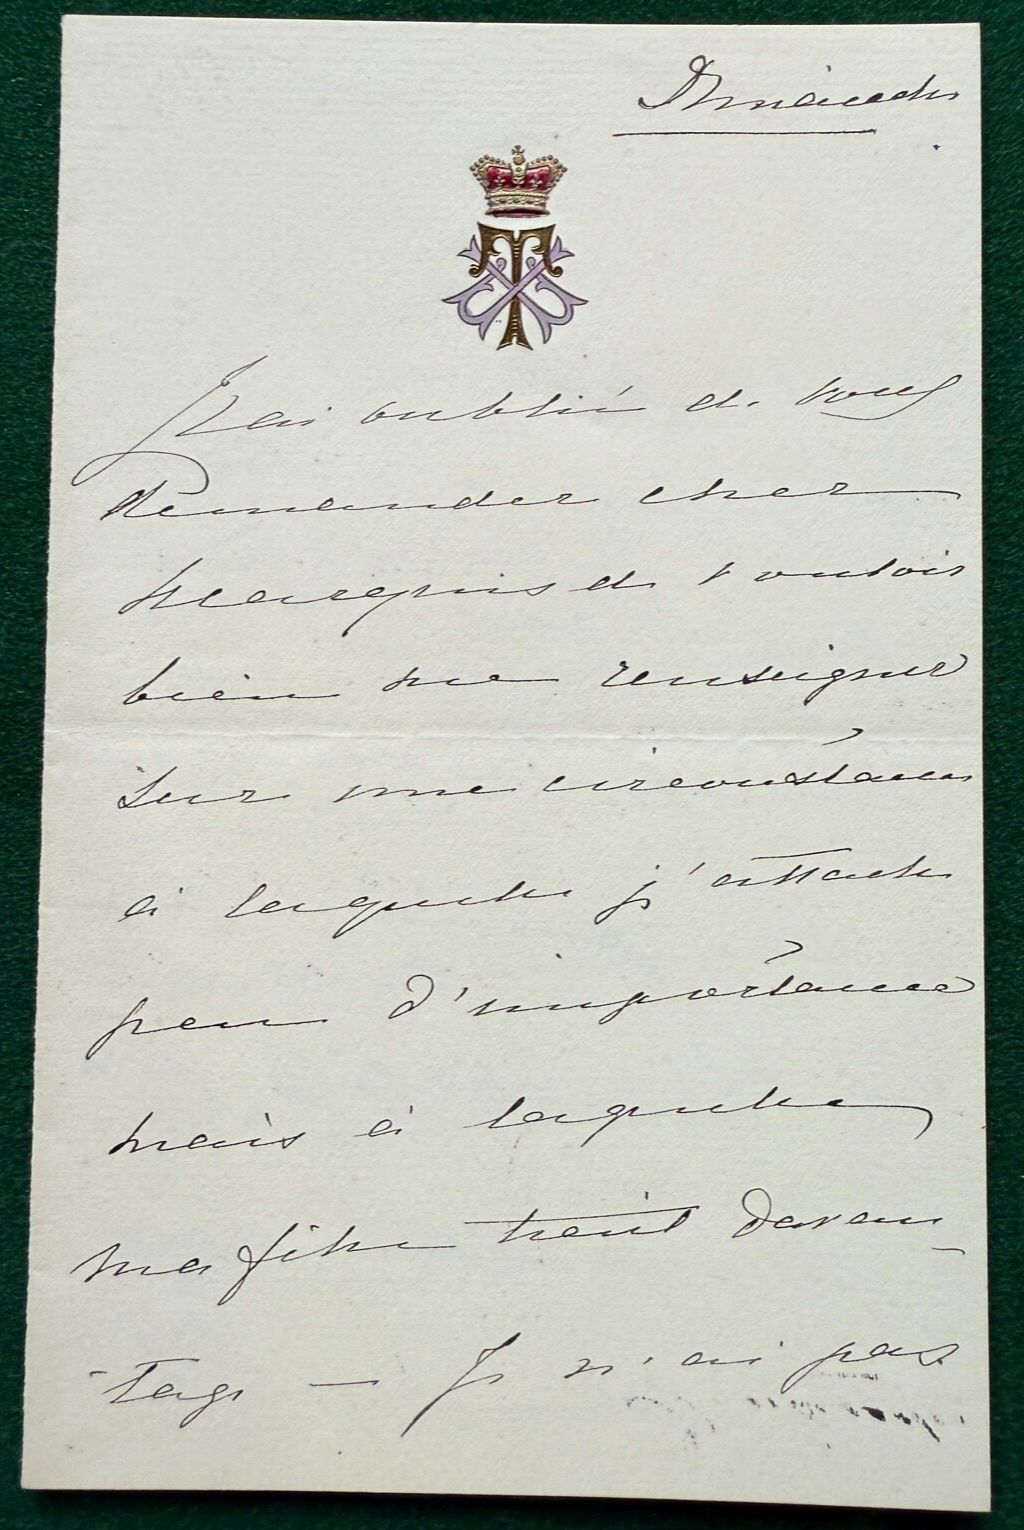 Dimanche
J'ai oublié de vous
demander cher
Marquis de vouloir
bien me renseigner
sur une circonstance
à laquelle j'attache
peu d'importance
mais à laquelle
ma fille tient davan-
-tage — Je n'ai pas